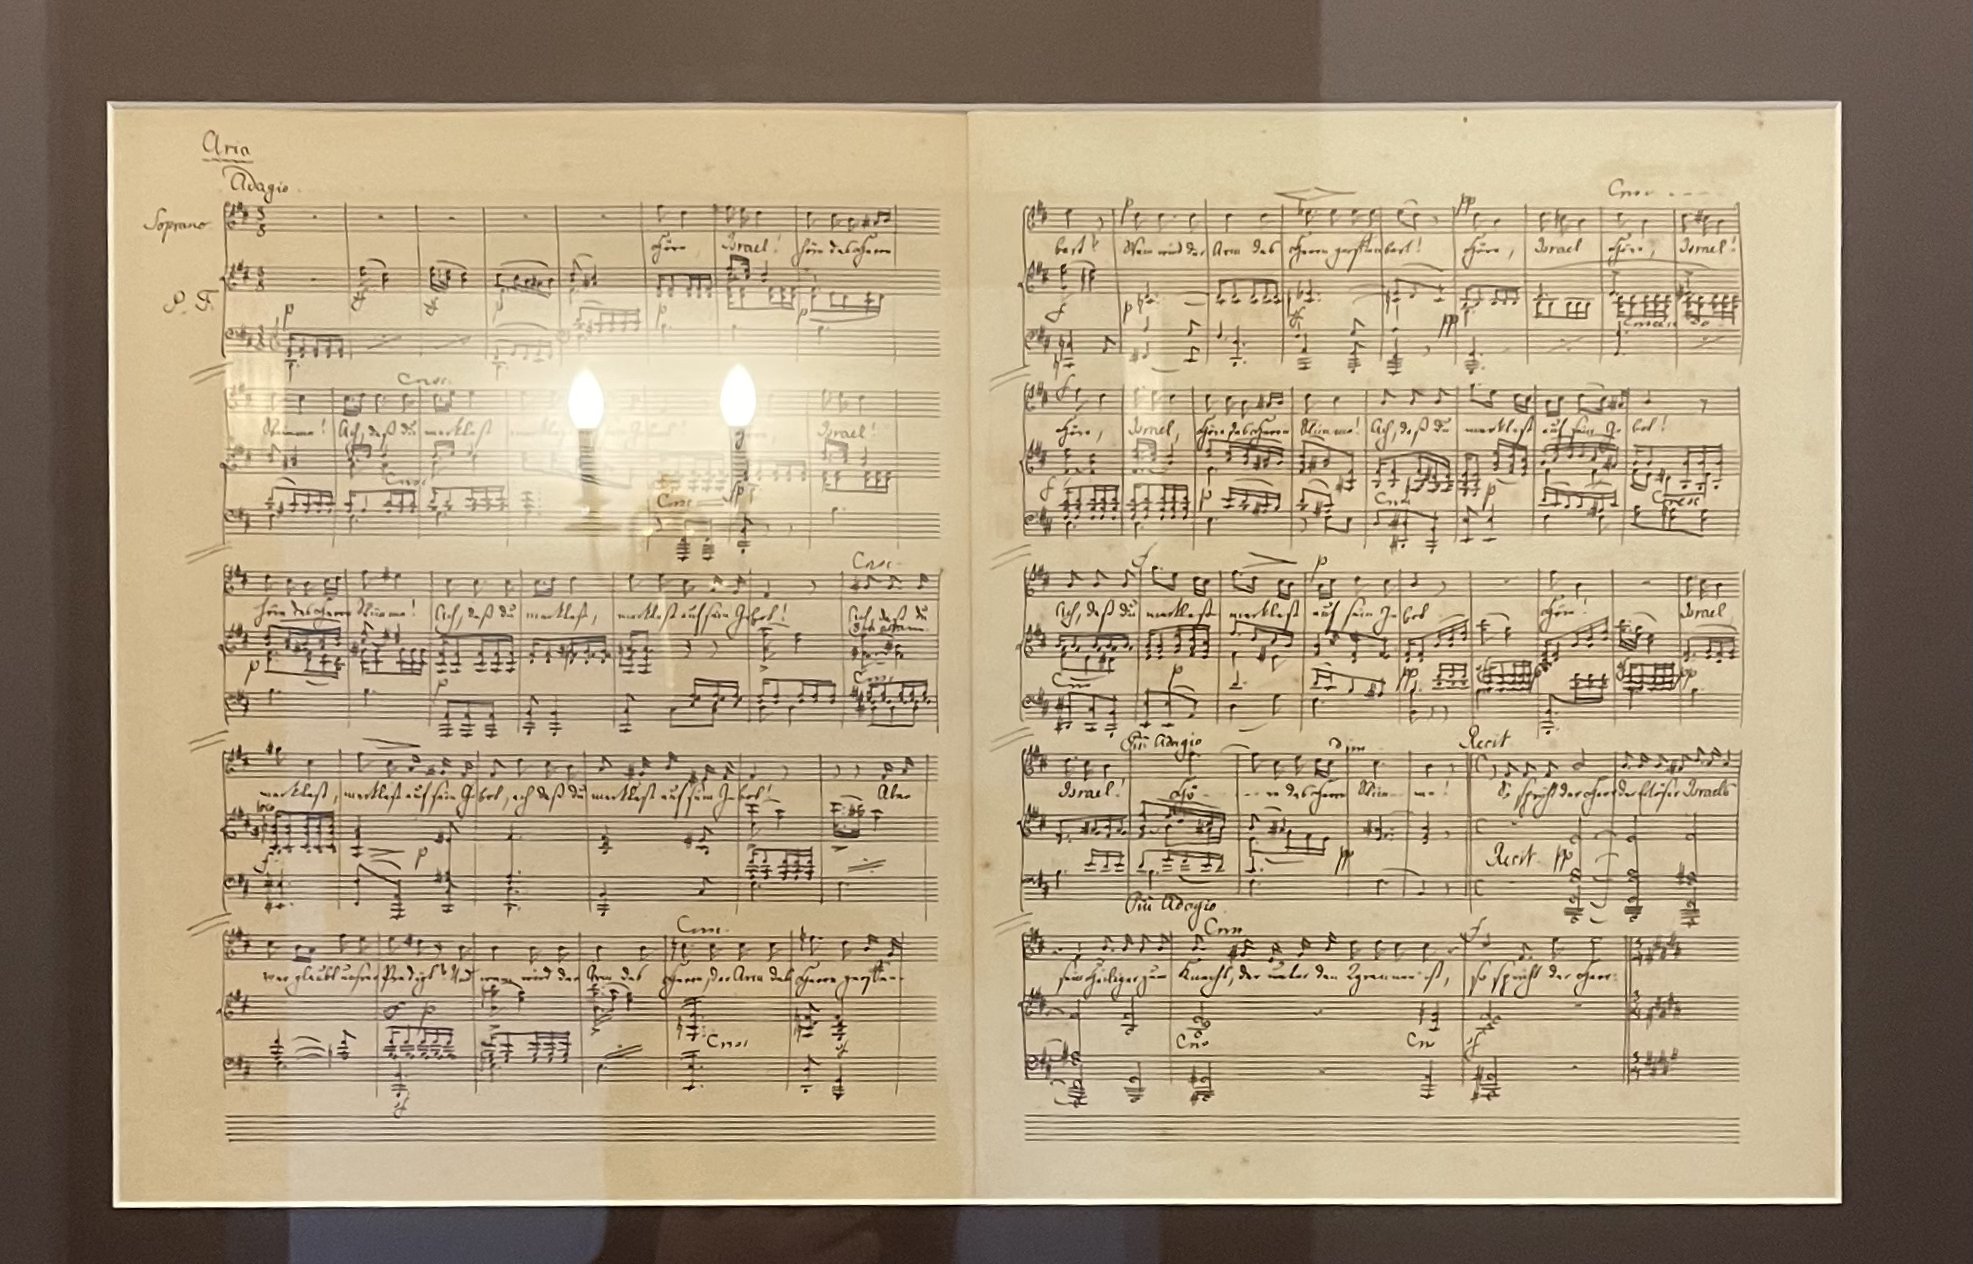 Aria
Adagio
Soprano
Höre, Israel! höre des Herrn
P. F.
p p p
Cresc.
Stimme! Ach, daß du merktest Israel!
Cresc.
Cresc.
Cresc.
höre des Herrn Stimme! Ach, daß du merktest, merktest auf sein Gebot! Ach, daß du
p p
merktest, merktest auf sein Gebot, ach daß du merktest auf sein Gebot! Aber
loco
f p
Cresc.
wer glaubt unsrer Predigt? Und wem wird der Arm des Herrn, der Arm des Herrn geoffen-
p
Cresc.
p pp Cresc.
bart? Wem wird der Arm des Herrn geoffenbart! Höre, Israel Höre, Israel!
f p pp
f
Höre, Israel, höre des Herrn Stimme! Ach, daß du merktest auf sein Gebot!
f p Cresc. p Cresc.
f p
Ach, daß du merktest merktest auf sein Gebot Höre! Israel
p pp pp
Più Adagio dim Recit
Israel! Hö - - - re des Herrn Stim - - me! So spricht der Herr der Erlöser Israels
Recit pp
pp
Più Adagio
Cresc. f
sein Heiliger zum Knecht, der unter den Tyrannen ist, so spricht der Herr:
Cresc. f